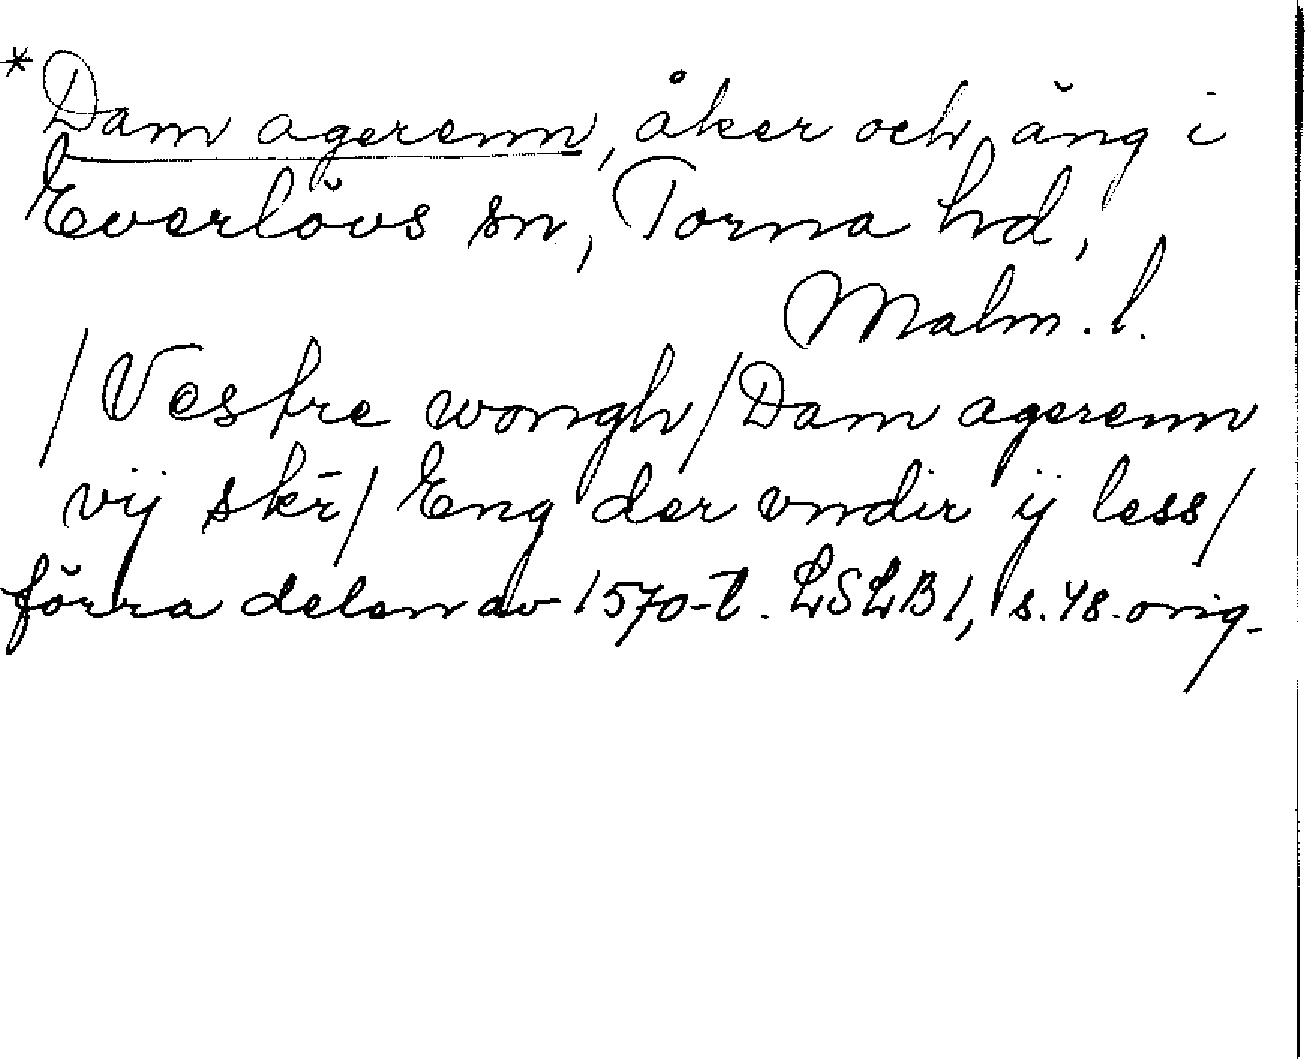 *Dam agerenn, åker och äng i
Everlövs sn, Torna hd,
Malm. l.
/Vestre wongh/Dam agerenn
vij skr̄/ Eng der vndir ij less/
förra delen av 1570-t. LSLB1, s. 48. orig.